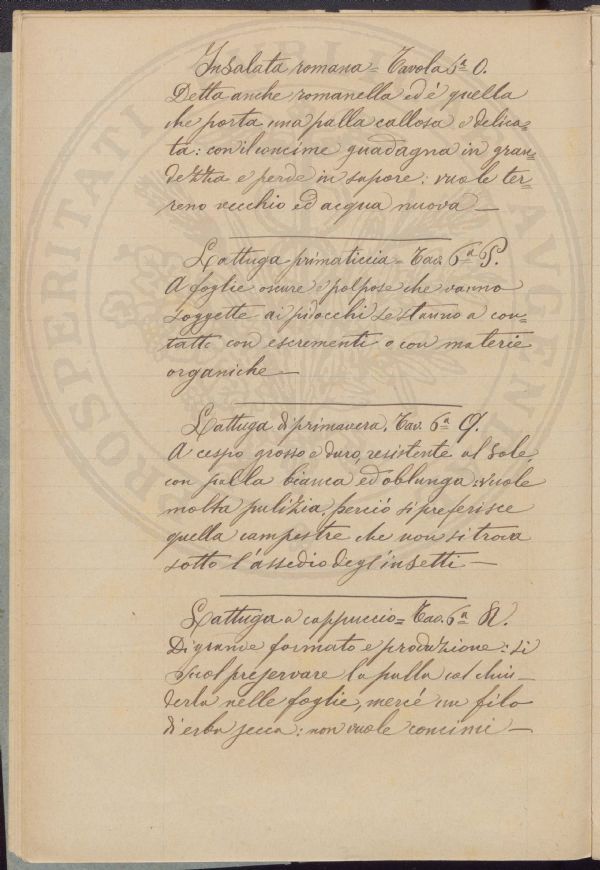 Insalata romana = Tavola 6ª O.
Detta anche romanella ed é quella
che porta una palla callosa e delica=
ta: con il concime guadagna in gran=
dezza e perde in sapore: vuole ter=
reno vecchio ed acqua nuova —
Lattuga primaticcia = Tav. 6ª P.
A foglie oscure e polpose che vanno
soggette ai pidocchi se stanno a con=
tatto con escrementi o con materie
organiche —
Lattuga di primavera. Tav. 6ª Q.
A cespo grosso e duro, resistente al sole,
con palla bianca ed oblunga: vuole
molta pulizia, perció si preferisce
quella campestre che non si trova
sotto l'assedio degl'insetti —
Lattuga a cappuccio = Tav. 6ª R.
Di grande formato e produzione: si
suol preservare la palla col chiu=
derla nelle foglie, mercé un filo
di erba secca: non vuole concimi —
PROSPERITATI PUBLICAE AUGENDAE